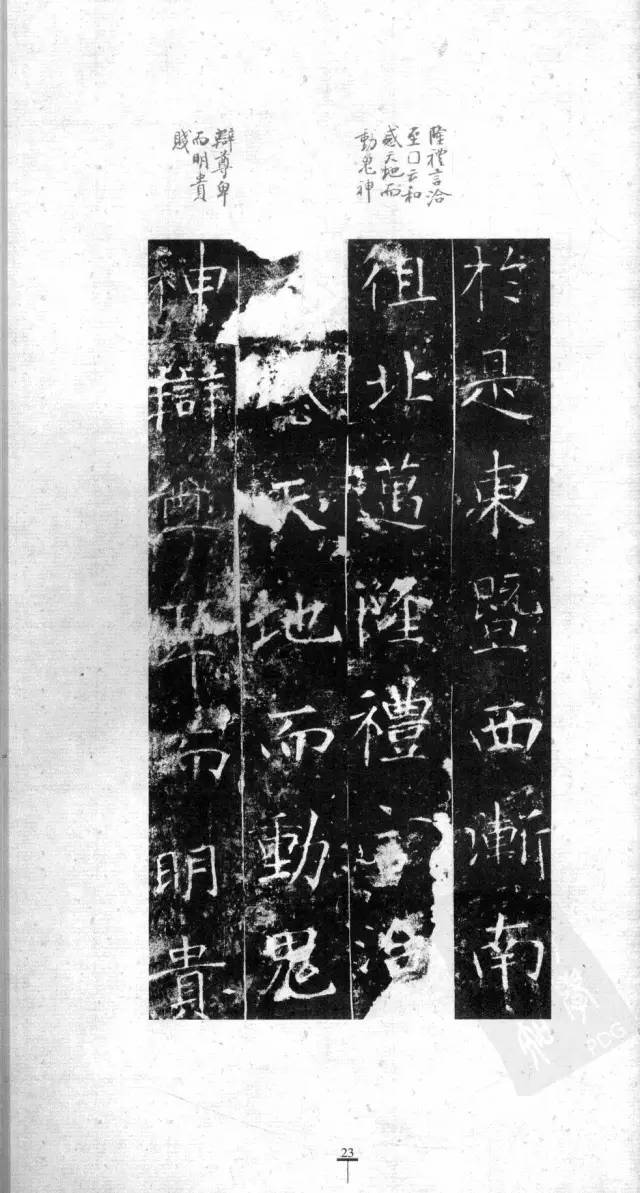 隆禮言洽
至口云和
感天地而
動鬼神
辯尊卑
而明貴
賤
於是東暨西漸南
徂北邁隆禮言洽
天地而動鬼
神辯尊卑而明貴
23
PDG